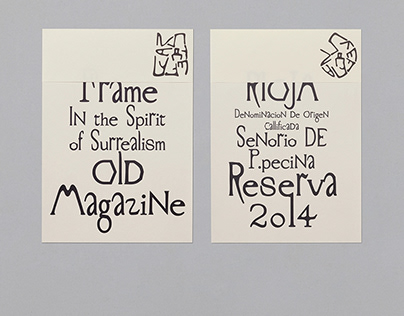 Frame
IN the Spirit
of Surrealism
OlD
MagaziNe
RiOJA
DeNomiNacioN De OrigeN
CallificaDa
SeNorio DE
P.peciNa
Reserva
2014